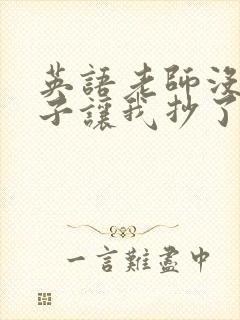 英語老師沒
子讓我抄了
一言難盡中